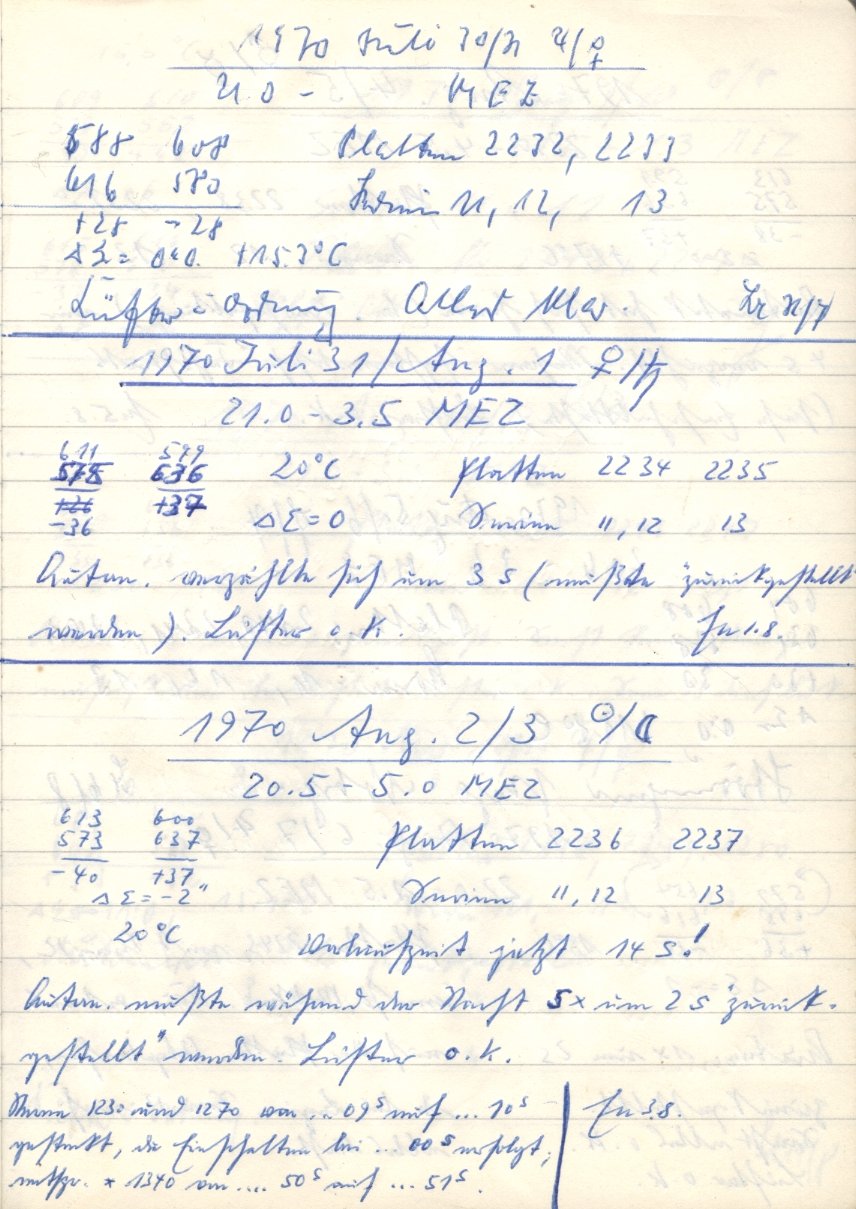 1970 Juli 30/31 ♃/♀
21.0 - MEZ
588 608 Platten 2232, 2233
616 580 Serien 11, 12, 13
+28 -28
ΔΣ = 0".0 +15.3°C
Lüfter in Ordnung. Alles klar.
1970 Juli 31/Aug. 1 ♀/♄
21.0 - 3.5 MEZ
611 599
575 636 20°C Platten 2234 2235
-36 +37 ΔΣ = 0 Serien 11, 12 13
Autom. verzählte sich um 3 s (mußte "zurückgestellt"
werden). Lüfter o.k. 1.8.
1970 Aug. 2/3 ☉/☾
20.5 - 5.0 MEZ
613 600
573 637 Platten 2236 2237
-40 +37
ΔΣ = -2" Serien 11, 12 13
20°C Vorlaufzeit jetzt 14 s!
Autom. mußte während der Nacht 5 x um 2 s "zurück-
gestellt" werden. Lüfter o.k.
Sterne 1230 und 1270 von ... 09ˢ auf ... 10ˢ 3.8.
gestellt, da Einschalten bei ... 00ˢ erfolgt,
entspr. * 1340 von ... 50ˢ auf ... 51ˢ.